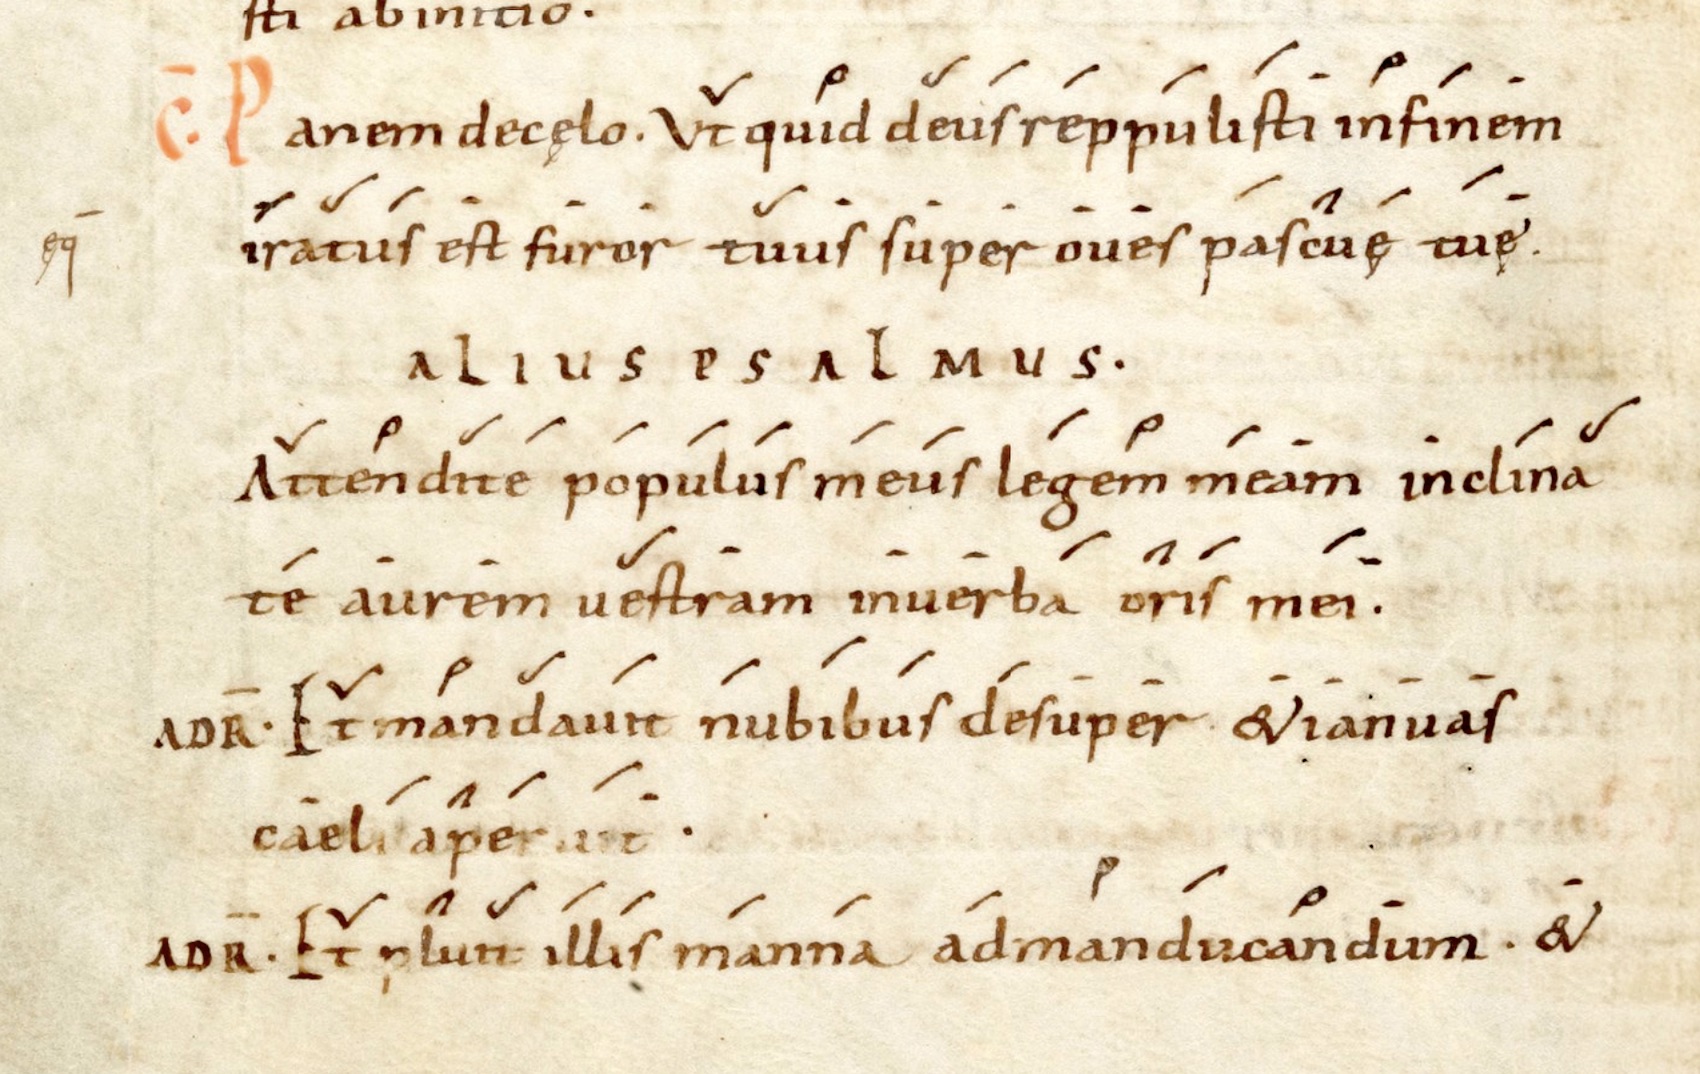 sti abinitio.
C̄. Panem decęlo. Vt quid deus reppulisti infinem
eq̄ iratus est furor tuus super oues pascuę tuę.
ALIUS PSALMUS.
Attendite populus meus legem meam inclina
te aurem uestram inuerba oris mei.
ADR̄. Et mandauit nubibus desuper & ianuas
caeli aperuit.
ADR̄. Et pluit illis manna admanducandum. &